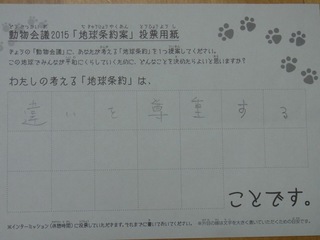 動物会議2015「地球条約案」投票用紙
きょうの「動物会議」に、あなたが考える「地球条約」を1つ提案してください。
この地球でみんなが平和にくらしていくために、どんなことを決めたらよいと思いますか?
わたしの考える「地球条約」は、
違いを尊重する
ことです。
※インターミッション(休憩時間)に投票していただきます。